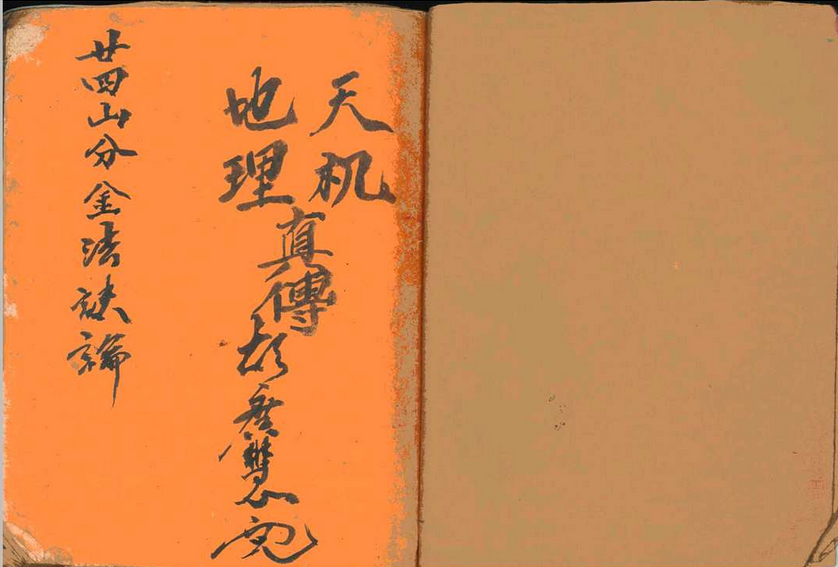 天机
地理
真傳
廿四山分金法訣論